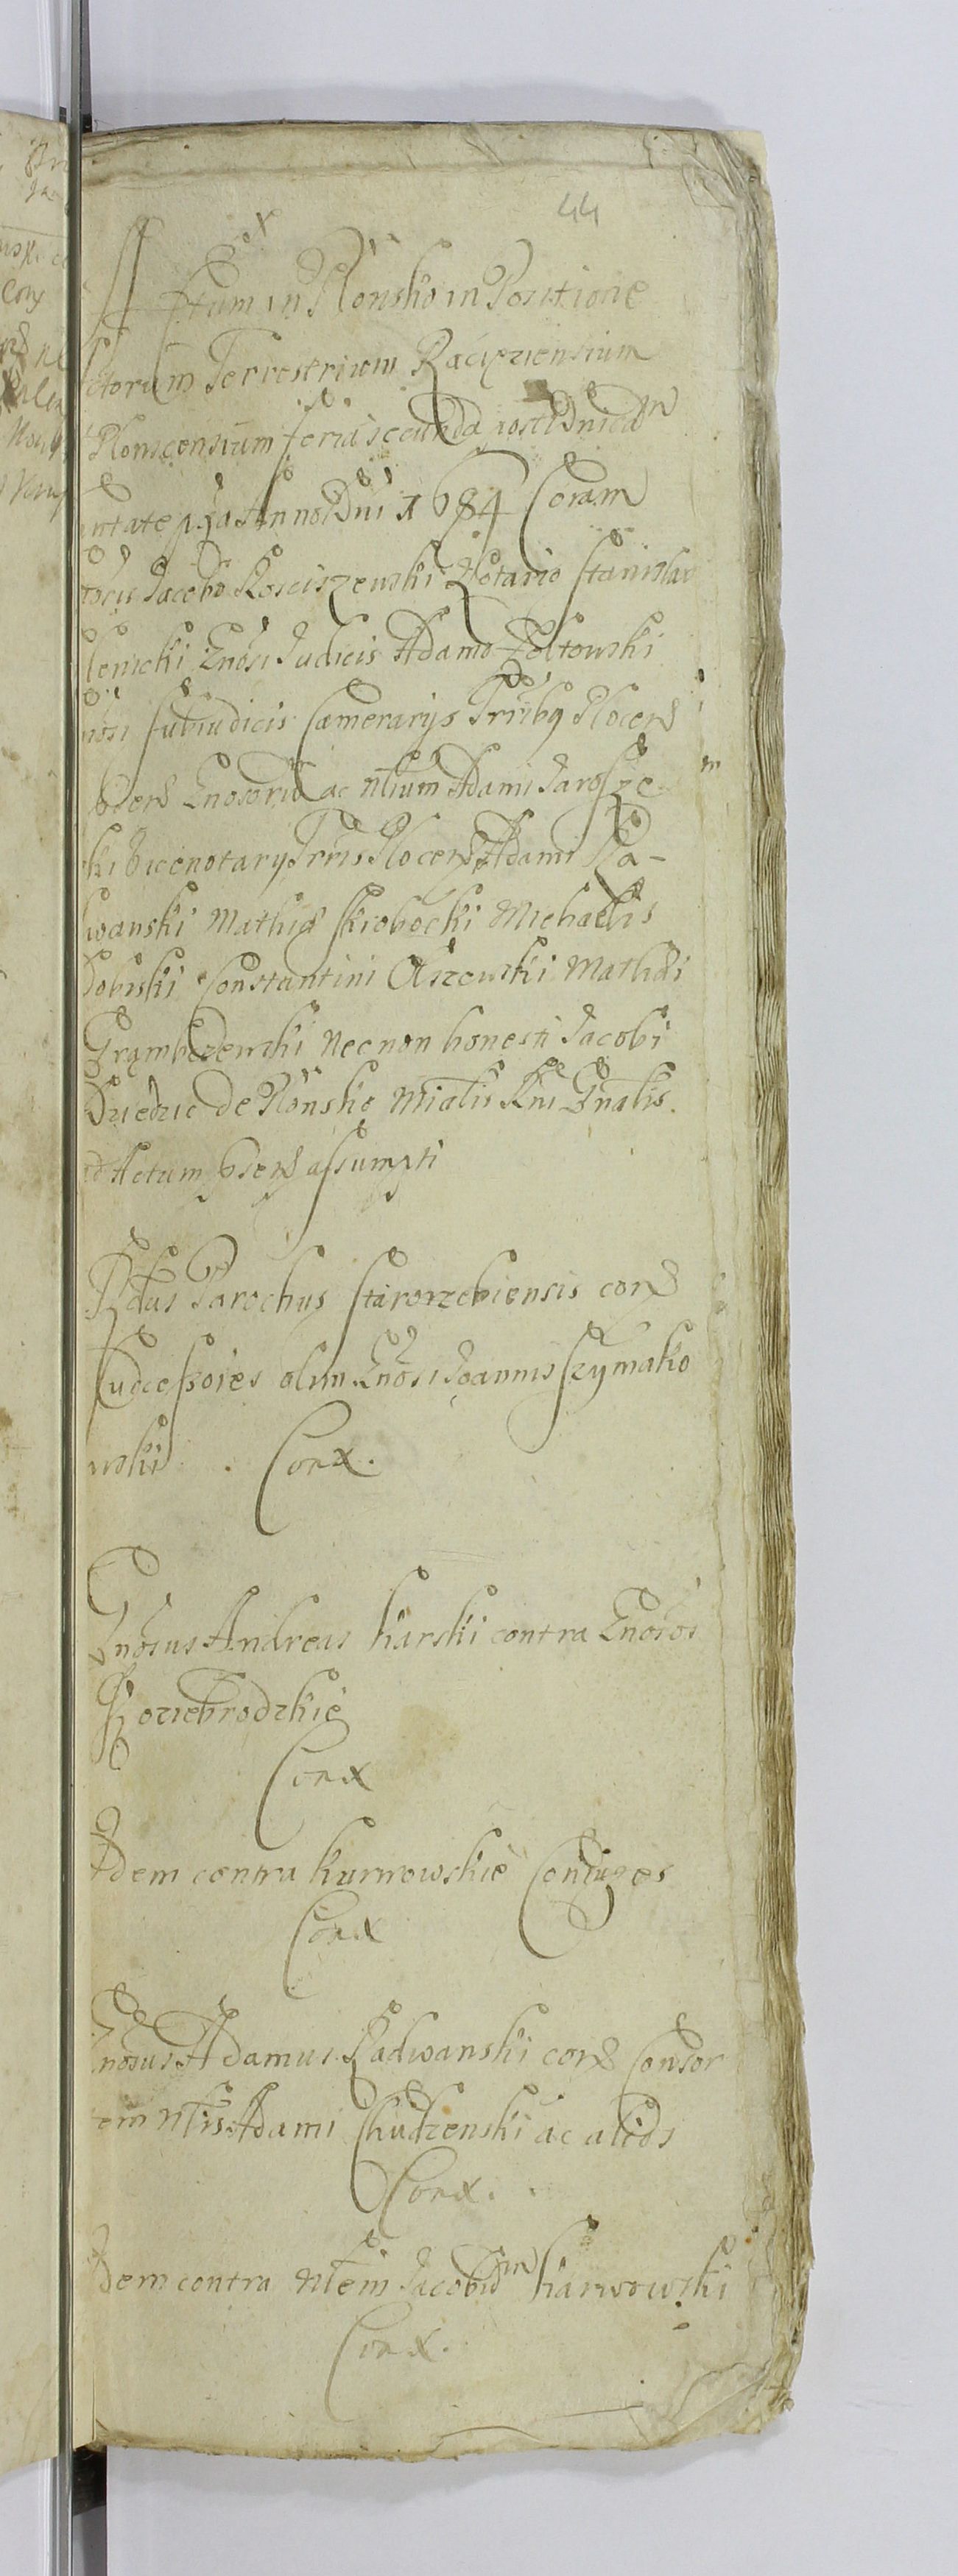 44
Actum in Płonsko in Positione
Actorum Terrestrium Raciąziensium
Plonscensium feria secunda post Dnicam
Anno Dni 1684 Coram
Jacobo Kosciszewski Notario Stanislao
Gnosi Judicis Adamo Zołtowski
Gnosi Subiudicis Camerarys Trribq Plocen
Gnosorū ac Nlium Adami Jarosze
ski Vicenotary Trris Plocen Adami Ra-
dwanski Mathia Skrobocki Michaelis
Constantini Olszewski Mathai
Grąmbczewski nec non honesti Jacobi
Dziedzic de Płonsko Mialis Rni Gnalis
ad Actum psens assumpti
Rdus Parochus Starorzebiensis con
Successores olim Gnosi Joannis Szymako
wski . Conx.
Gnosus Andreas Karski contra Gnosos
Koziebrodzkie
Conx
Idem contra Kurnowskie Coniuges
Conx
Gnosus Adamus Radwanski con Consor
tem Nlis Adami Chudzenski ac alios
Conx.
Idem contra Nlem Jacobum Karwowski
Conx.